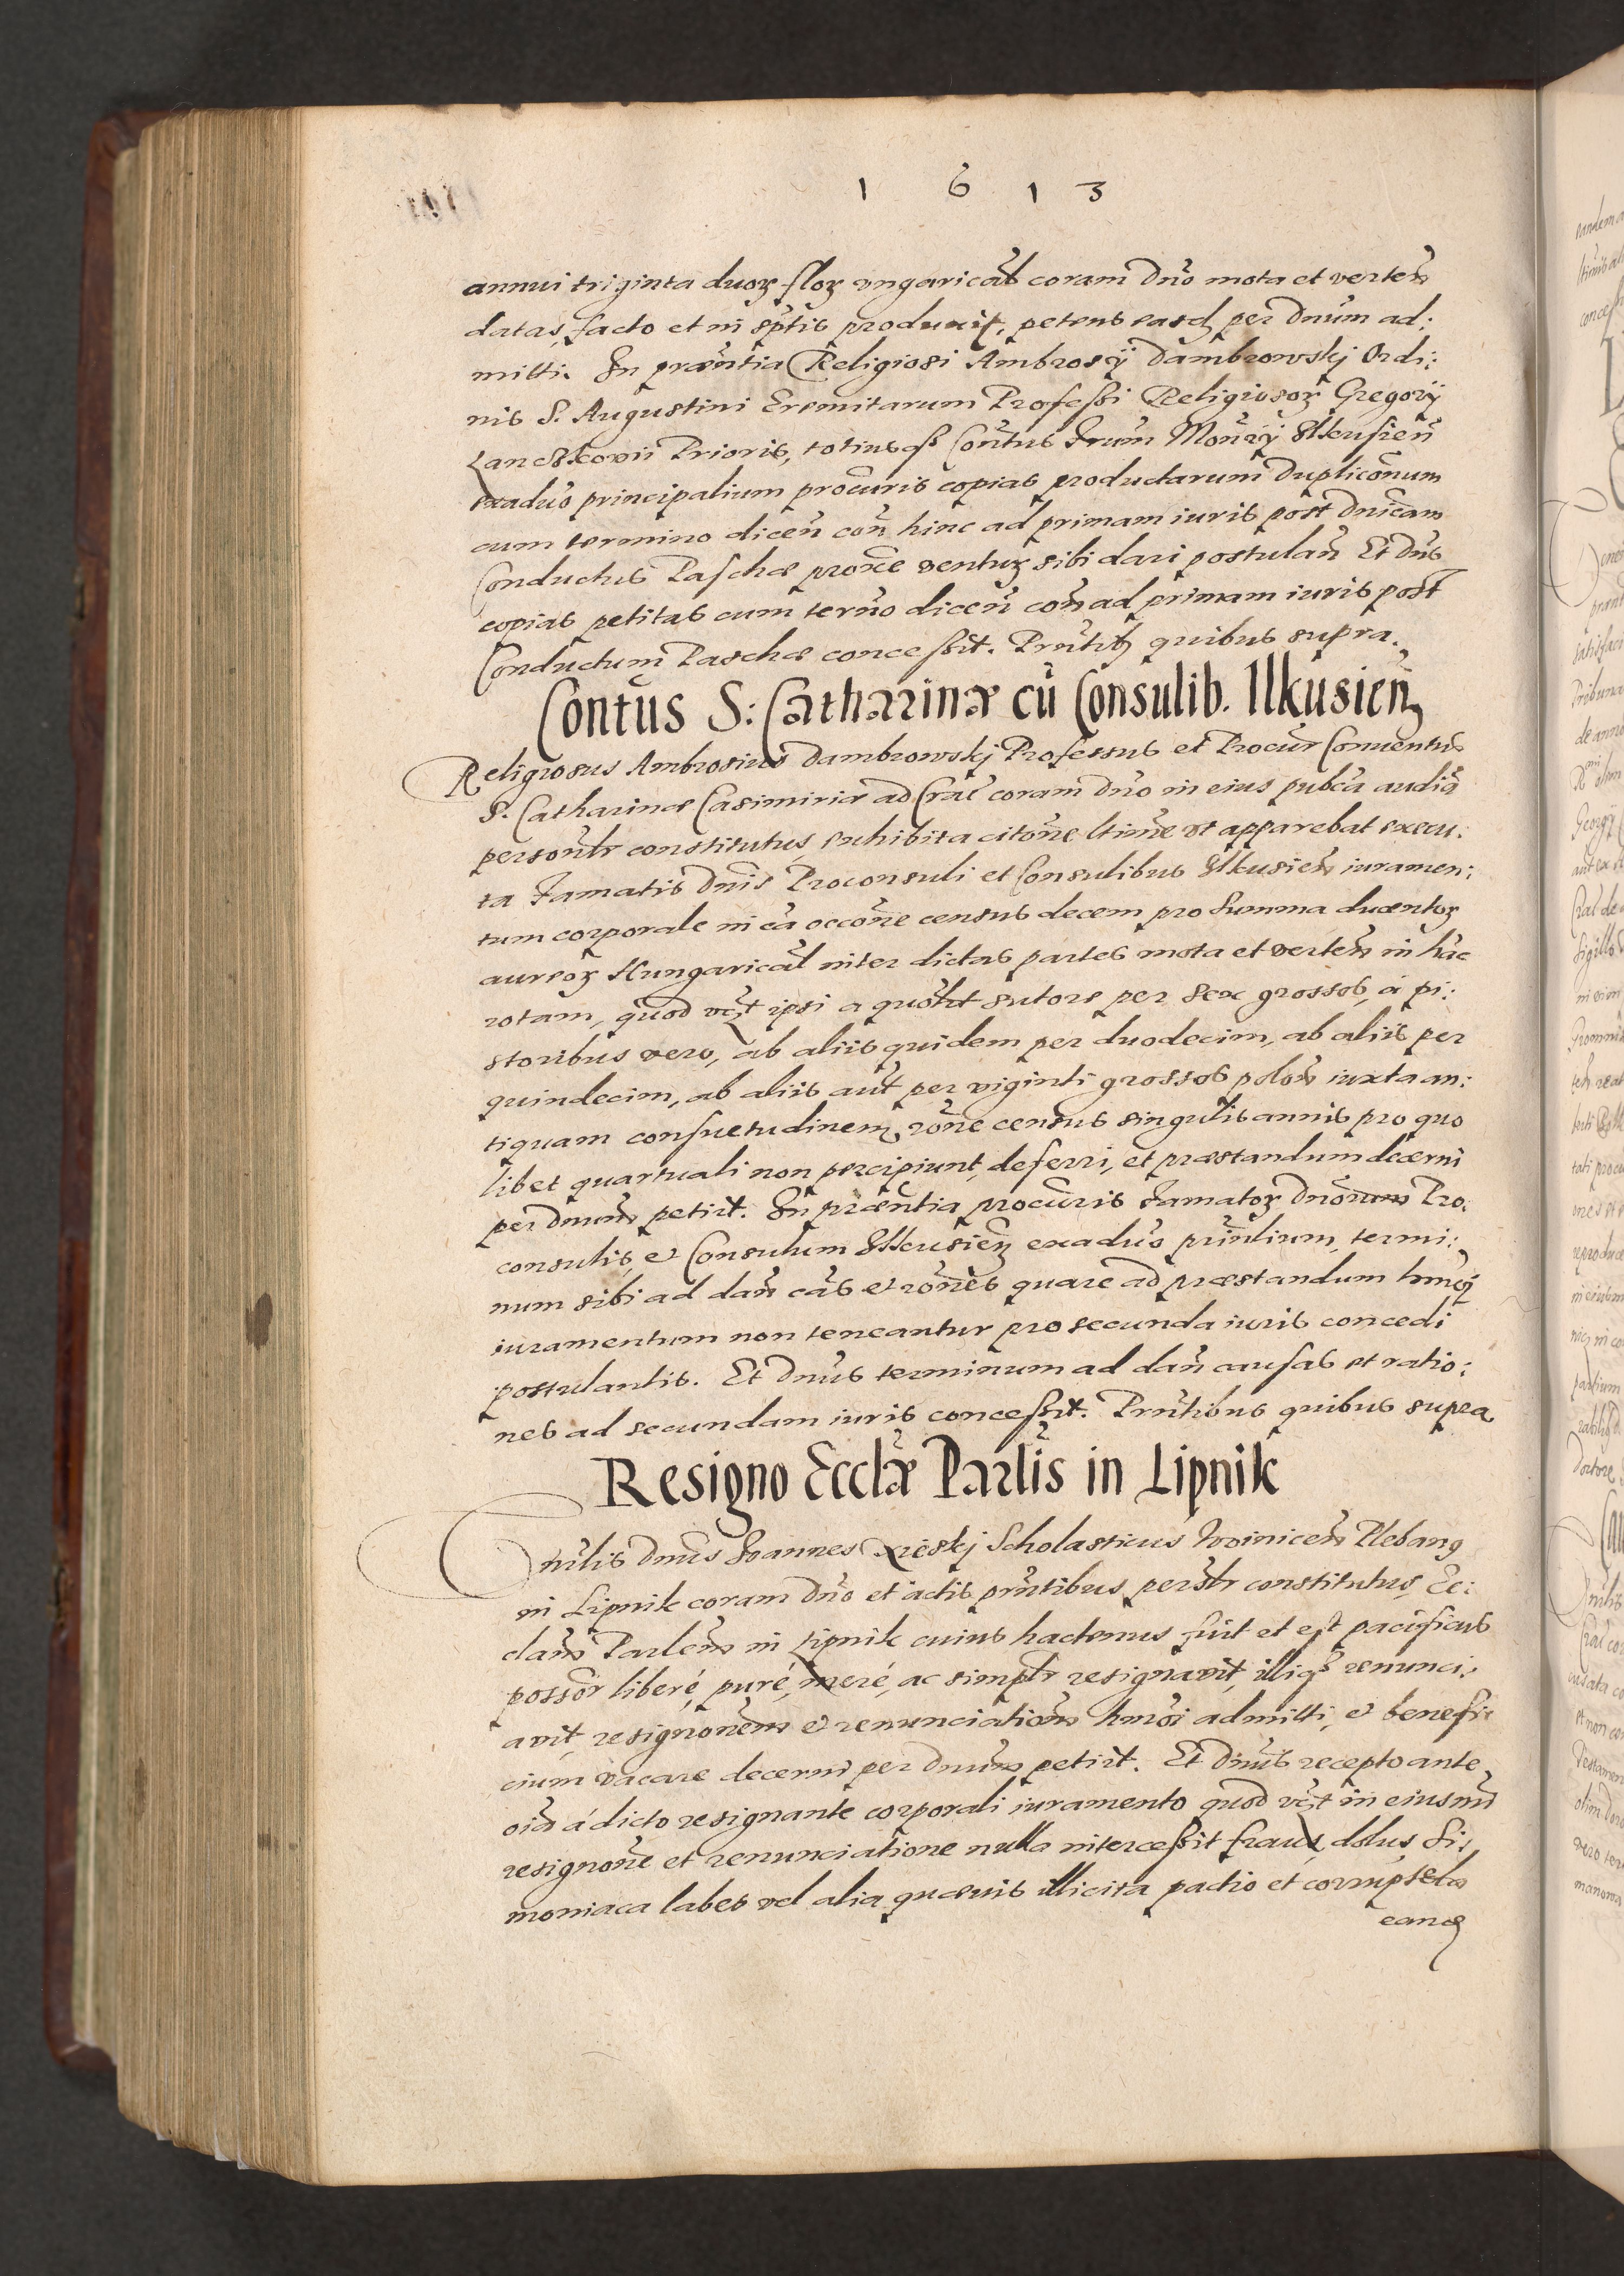 1 6 1 3
annui triginta duoꝝ floꝝ vngaricał coram Dn̄o mota et verteñ
datas, facto et in sp̄tis produxit, petens easd per Dnūm ad:
mitti. In præn̄tia Religiosi Ambrosÿ Dambrowskj Ordi:
nis S. Augustini Eremitarum Profeßi Religiosoꝝ Gregorÿ
Prioris, totiusqꝫ Con̄tus frum Monrÿ Ilkusień
exadūo principalium procūris copias productarum duplicōnum
cum termino diceń coń hinc ad primam iuris post Dnīcam
Conductus Paschæ proxē ventuꝝ sibi dari postulań Et Dn̄s
copias petitas cum tern̄o diceń coń ad primam iuris post
Conductum Paschæ conceßit. Prn̄tibꝫ quibus supra.
Contūs S: Catharinæ cū Consulib. Ilkusień
Religiosus Ambrosius Dambrowskj Professus et Procur̄ Conuentus
S. Catharinæ Casimiriæ ad Crac̄ coram Dn̄o in eius pub̄ca audiā
person̄lr constitutus, exhibita citōne ltīme vt apparebat execu:
ta Famatis Dn̄is Proconsuli et Consulibus Ilkusień iuramen:
tum corporale in cā occōne census decem pro summa ducentoꝝ
aureoꝝ Hungaricał inter dictas partes mota et verteń in hāc
rotam, quod vꝫt ipsi a quol̄bt sutore per sex grossos, á pi:
storibus vero, ab aliis quidem per duodecim, ab aliis per
quindecim, ab aliis aūt per viginti grossos poloń iuxta an:
tiquam consuetudinem, rōne census singulis annis pro quo
libet quartuali non percipiunt, deferri, et præstandum decerni
per Dnūm petiit. In præn̄tia procūris Famatoꝝ Dnōrum Pro:
consulis, et Consulum Ilkusień exadūo prin̄lium, termi:
num sibi ad dań cās et rōnes quare ad præstandum hmōi
iuramentum non teneantur pro secunda iuris concedi
postulantis. Et Dnūs terminum ad dań causas et ratio:
nes ad secundam iuris conceßit. Prn̄tibus quibus supra
Resigno Ecclæ Parlis in Lipnik
nr̄lis Dnūs Joannes Scholasticus Woiniceń Plebanꝰ
in Lipnik coram Dn̄o et actis prn̄tibus persl̄r constitutus, Ec:
clam̄ Parlem̄ in Lipnik cuius hactenus fuit et est pacificus
possōr liberé, puré, meré, ac simplr̄ resignavit, illiqꝫ renunci:
avit, resignōnem et renunciationem hmōi admitti, et benefi:
cium vacare decerni per Dnūm petiit. Et Dnūs recepto ante
oīa á dicto resignante corporali iuramento quod vꝫt in eiusmōi
resignōne et renunciatione nulla interceßit fraus, dolus, Si:
moniaca labes vel alia quæuis illicita pactio et corruptela
eand